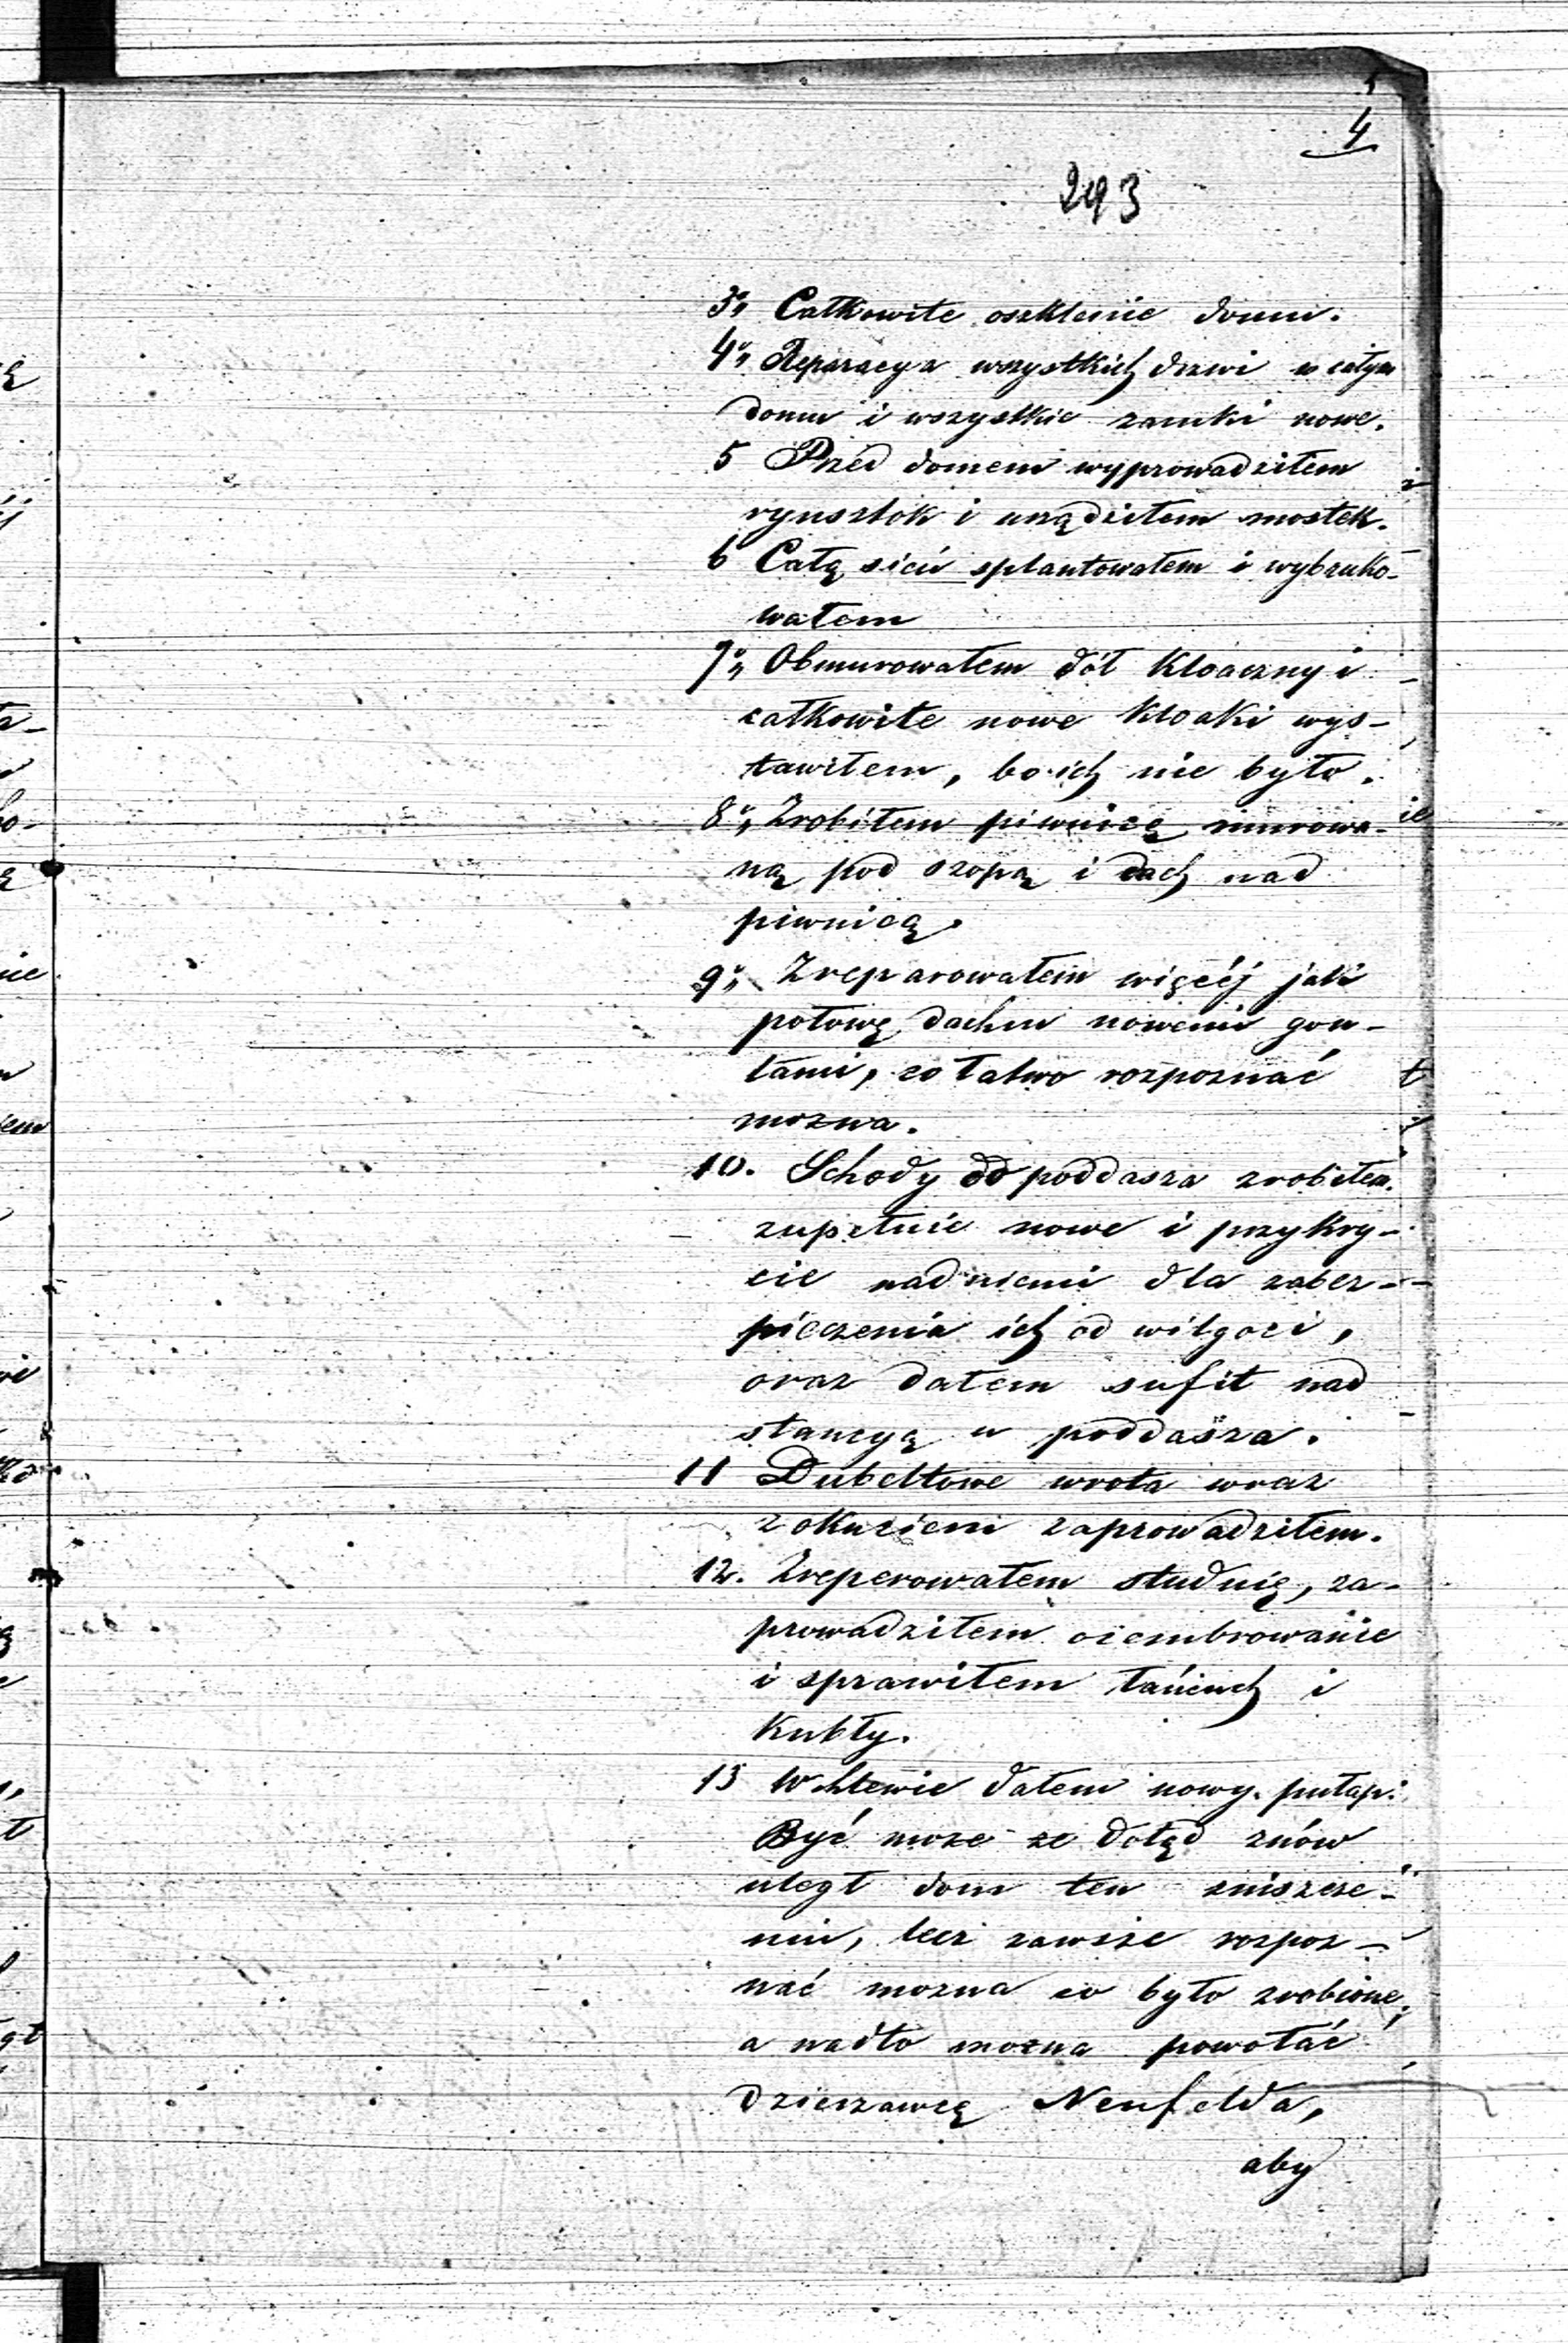 4
293
3o, Całkowite oszklenie domu.
4o, Reparacya wszystkich drzwi w całym
domu i wszystkie zamki nowe.
5 Przed domem wyprowadziłem
rynsztok i urządziłem mostek.
6 Całą sień splantowałem i wybruko-
wałem
7o, Obmurowałem dół kloaczny i
całkowite nowe kloaki wys-
tawiłem, bo ich nie było.
8o, Zrobiłem piwnicę murowa-
ną pod szopą i dach nad
piwnicą.
9o, Zreparowałem więcéj jak
połowę dachu nowemi gon-
tami, co łatwo rozpoznać
mozna.
10. Schody do poddasza zrobiłem
zupełnie nowe i przykry-
cie nad niemi dla zabez-
pieczenia ich od wilgoci,
oraz dałem sufit nad
stancyą u poddasza.
11 Dubeltowe wrota wraz
z okuciem zaprowadziłem.
12. Zreperowałem studnię, za-
prowadziłem ocembrowanie
i sprawiłem łańcuch i
kubły.
13 W chlewie dałem nowy pułap.
Być moze ze dotąd znów
uległ dom ten zniszcze-
niu, lecz zawsze rozpoz-
nać mozna co było zrobione,
a nadto mozna powołać
dzierzawcę Neufelda,
aby